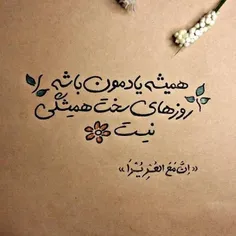 همیشه یادمون باشه
روزهای سخت همیشگی
نیست
«إنَّ مَعَ العُسْرِ یُسْرًا»